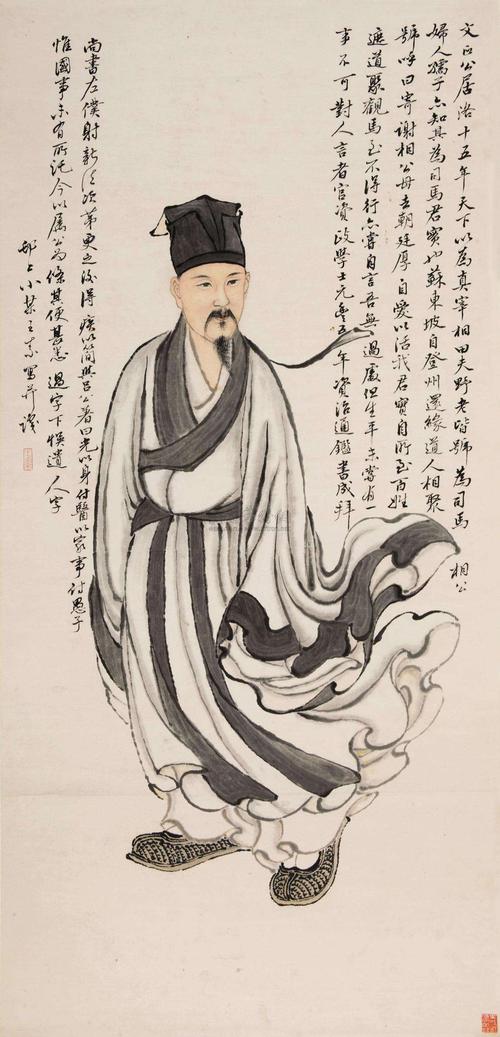 文正公居洛十五年天下以為真宰相田夫野老皆號為司馬相公
婦人孺子亦知其為司馬君實也蘇東坡自登州還緣道人相聚
號呼曰寄謝相公毋去朝廷厚自愛以活我君實自所至百姓
遮道聚觀馬至不得行亦嘗自言吾無過處但生平未嘗有一
事不可對人言者官資政學士元豐五年資治通鑑書成拜
尚書左僕射新法次第更之後得疾以簡與呂公著曰光以身付醫以家事付愚子
惟國事未有所託今以屬公為條其便甚悉 過字下悞遺人字
邗上小某王素寫並識